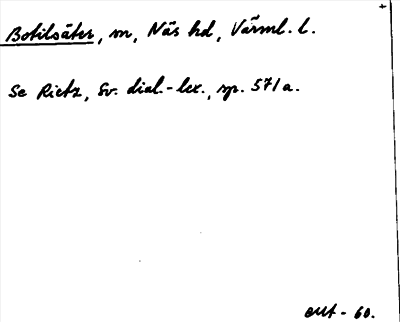 Botilsäter, m, Näs hd, Värml. l.
Se Rietz, Sv. dial.-lex., sp. 571a.
- 60.